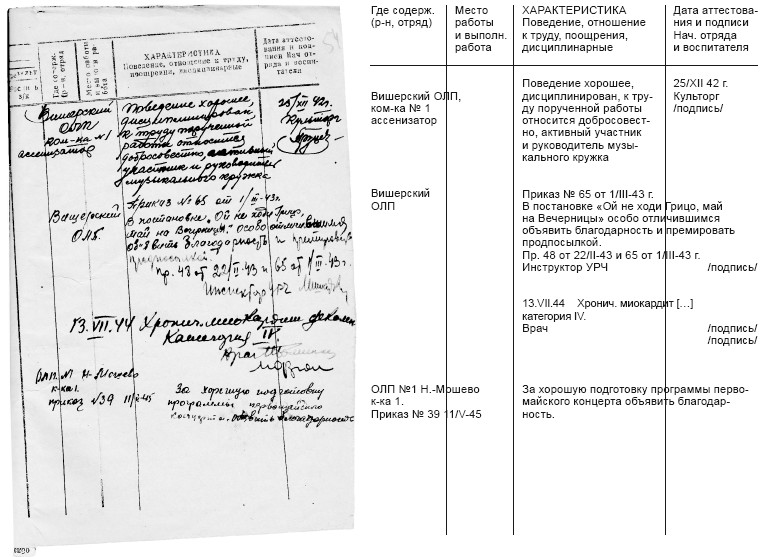 ХАРАКТЕРИСТИКА
Поведение, отношение к труду,
поощрения, дисциплинарные
Дата аттесто-
вания и под-
писи Нач от-
ряда и воспи-
тателя
Где содерж.
р-н, отряд
Место работы
и выполн ра-
бота
Вишерский
ОЛП
ком-ка №1
ассенизатор
Поведение хорошее,
дисциплинирован
к труду порученной
работы относится
добросовестно, активный
участник и руководитель
музыкального кружка
25/XII 42г.
Культорг
Вишерский
ОЛП.
Приказ №65 от 1/III-43г.
В постановке „Ой не ходи Грицо,
май на Вечерницы" особо отличившимся
объявить благодарность и премировать
продпосылкой.
Пр. 48 от 22/II-43 и 65 от 1/III-43 г.
Инструктор УРЧ
13.VII.44 Хронич. миокардит
Категория IV
Врач
ОЛП. №1 Н-Мошево
к-ка 1.
приказ №39 11/V-45
За хорошую подготовку
программы первомайского
концерта объявить благодарность
Где содерж.
(р-н, отряд)
Место
работы
и выполн.
работа
ХАРАКТЕРИСТИКА
Поведение, отношение
к труду, поощрения,
дисциплинарные
Дата аттестова-
ния и подписи
Нач. отряда
и воспитателя
Вишерский ОЛП,
ком-ка № 1
ассенизатор
Поведение хорошее,
дисциплинирован, к тру-
ду порученной работы
относится добросовест-
но, активный участник
и руководитель музы-
кального кружка
25/XII 42 г.
Культорг
/подпись/
Вишерский
ОЛП
Приказ № 65 от 1/III-43 г.
В постановке «Ой не ходи Грицо, май
на Вечерницы» особо отличившимся
объявить благодарность и премировать
продпосылкой.
Пр. 48 от 22/II-43 и 65 от 1/III-43 г.
Инструктор УРЧ /подпись/
13.VII.44 Хронич. миокардит […]
категория IV.
Врач /подпись/
/подпись/
ОЛП №1 Н.-Мошево
к-ка 1.
Приказ № 39 11/V-45
За хорошую подготовку программы перво-
майского концерта объявить благодар-
ность.